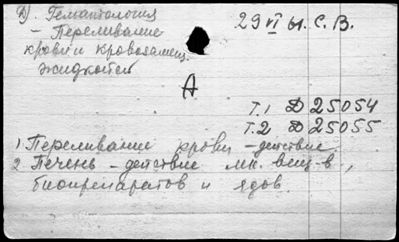 Д) Гематология
29 VI 61. С. В.
- Переливание
крови и кровозамещ.
жидкостей
А
Т.1 Д 25054
Т.2 Д 25055
1 Переливание крови - действие
2 Печень - действие мн. вещ-в,
биопрепаратов и ядов.